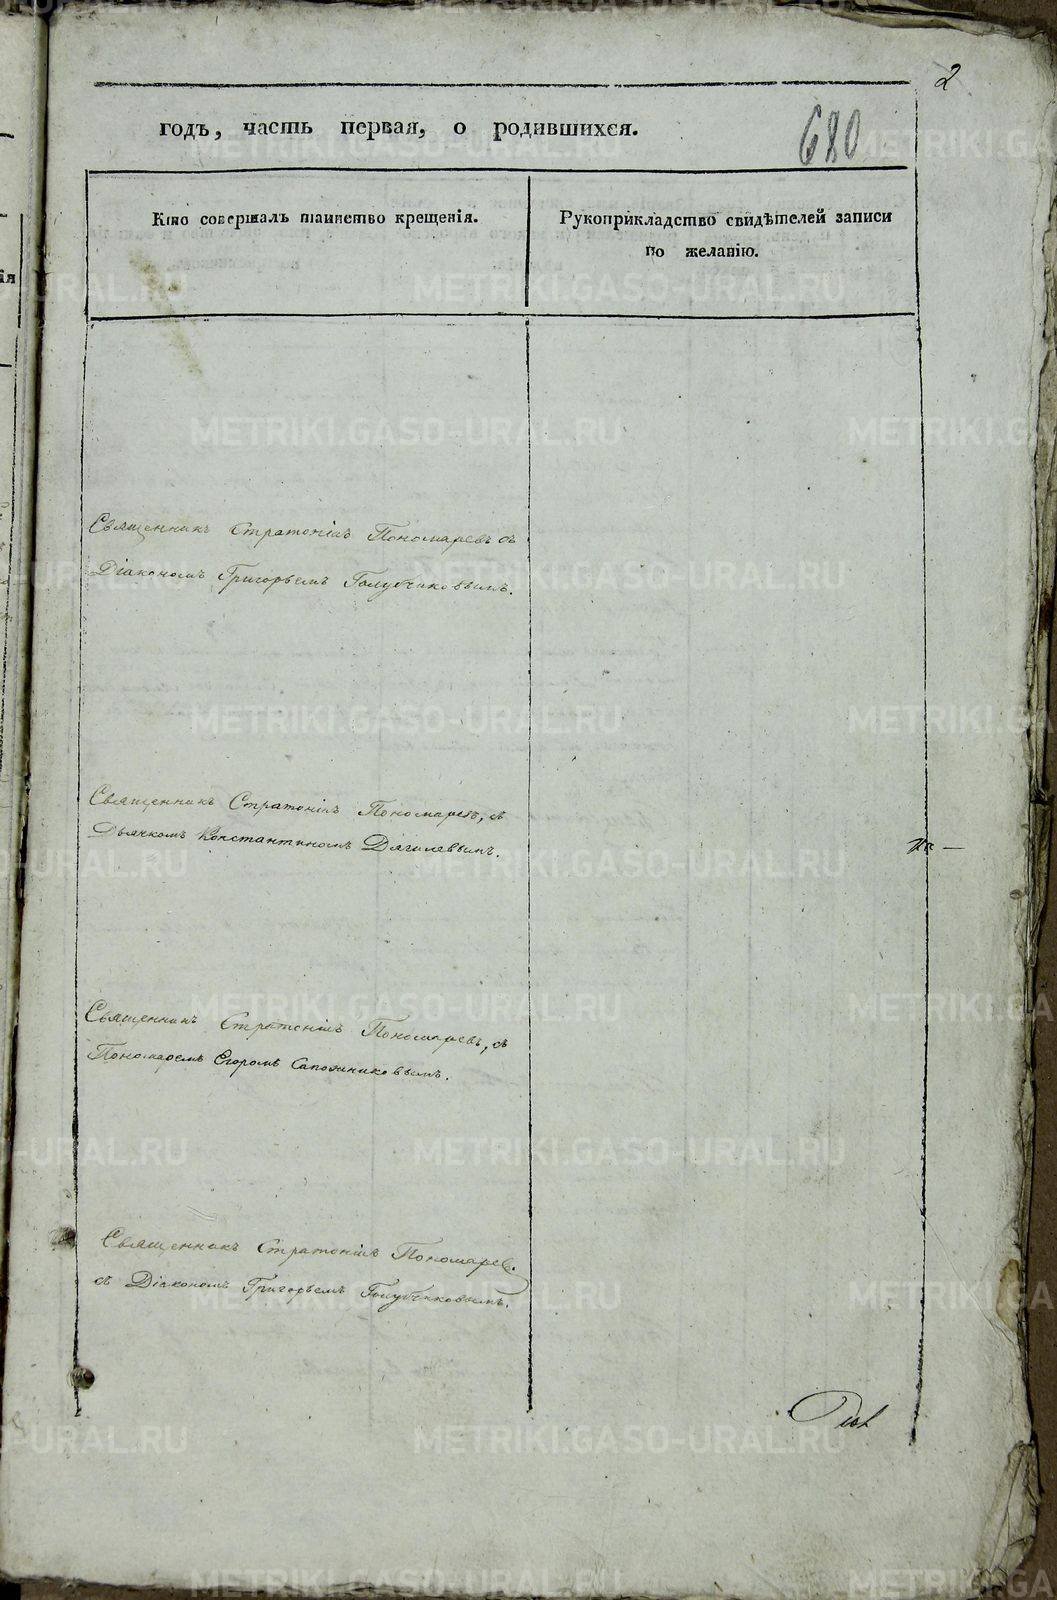 2
680
годъ, часть первая, о родившихся.
Кто совершалъ таинство крещенія.
Рукоприкладство свидѣтелей записи
по желанію.
Священникъ Стратоній Пономаревъ съ
Діакономъ Григорьемъ Голубчиковымъ.
Священникъ Стратоній Пономаревъ, съ
Дьячкомъ Константиномъ Дягилевымъ.
Священникъ Стратоній Пономаревъ, съ
Пономаремъ Егоромъ Сапожниковымъ.
Священникъ Стратоній Пономарев.
съ Діакономъ Григорьемъ Голубчиковымъ.
METRIKI.GASO-URAL.RU